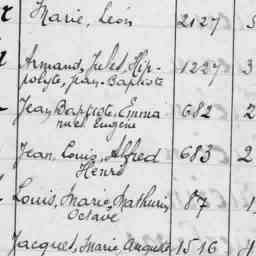 Marie, Léon 2127
Armand, Jules, Hip- 1227 3
polyte, Jean-Baptiste
Jean Baptiste, Emma 682 2
nuel Eugène
Jean, Louis, Alfred 683 2
Henri
Louis, Marie, Mathurin, 87 1
Octave
Jacques, Marie, Auguste 1516